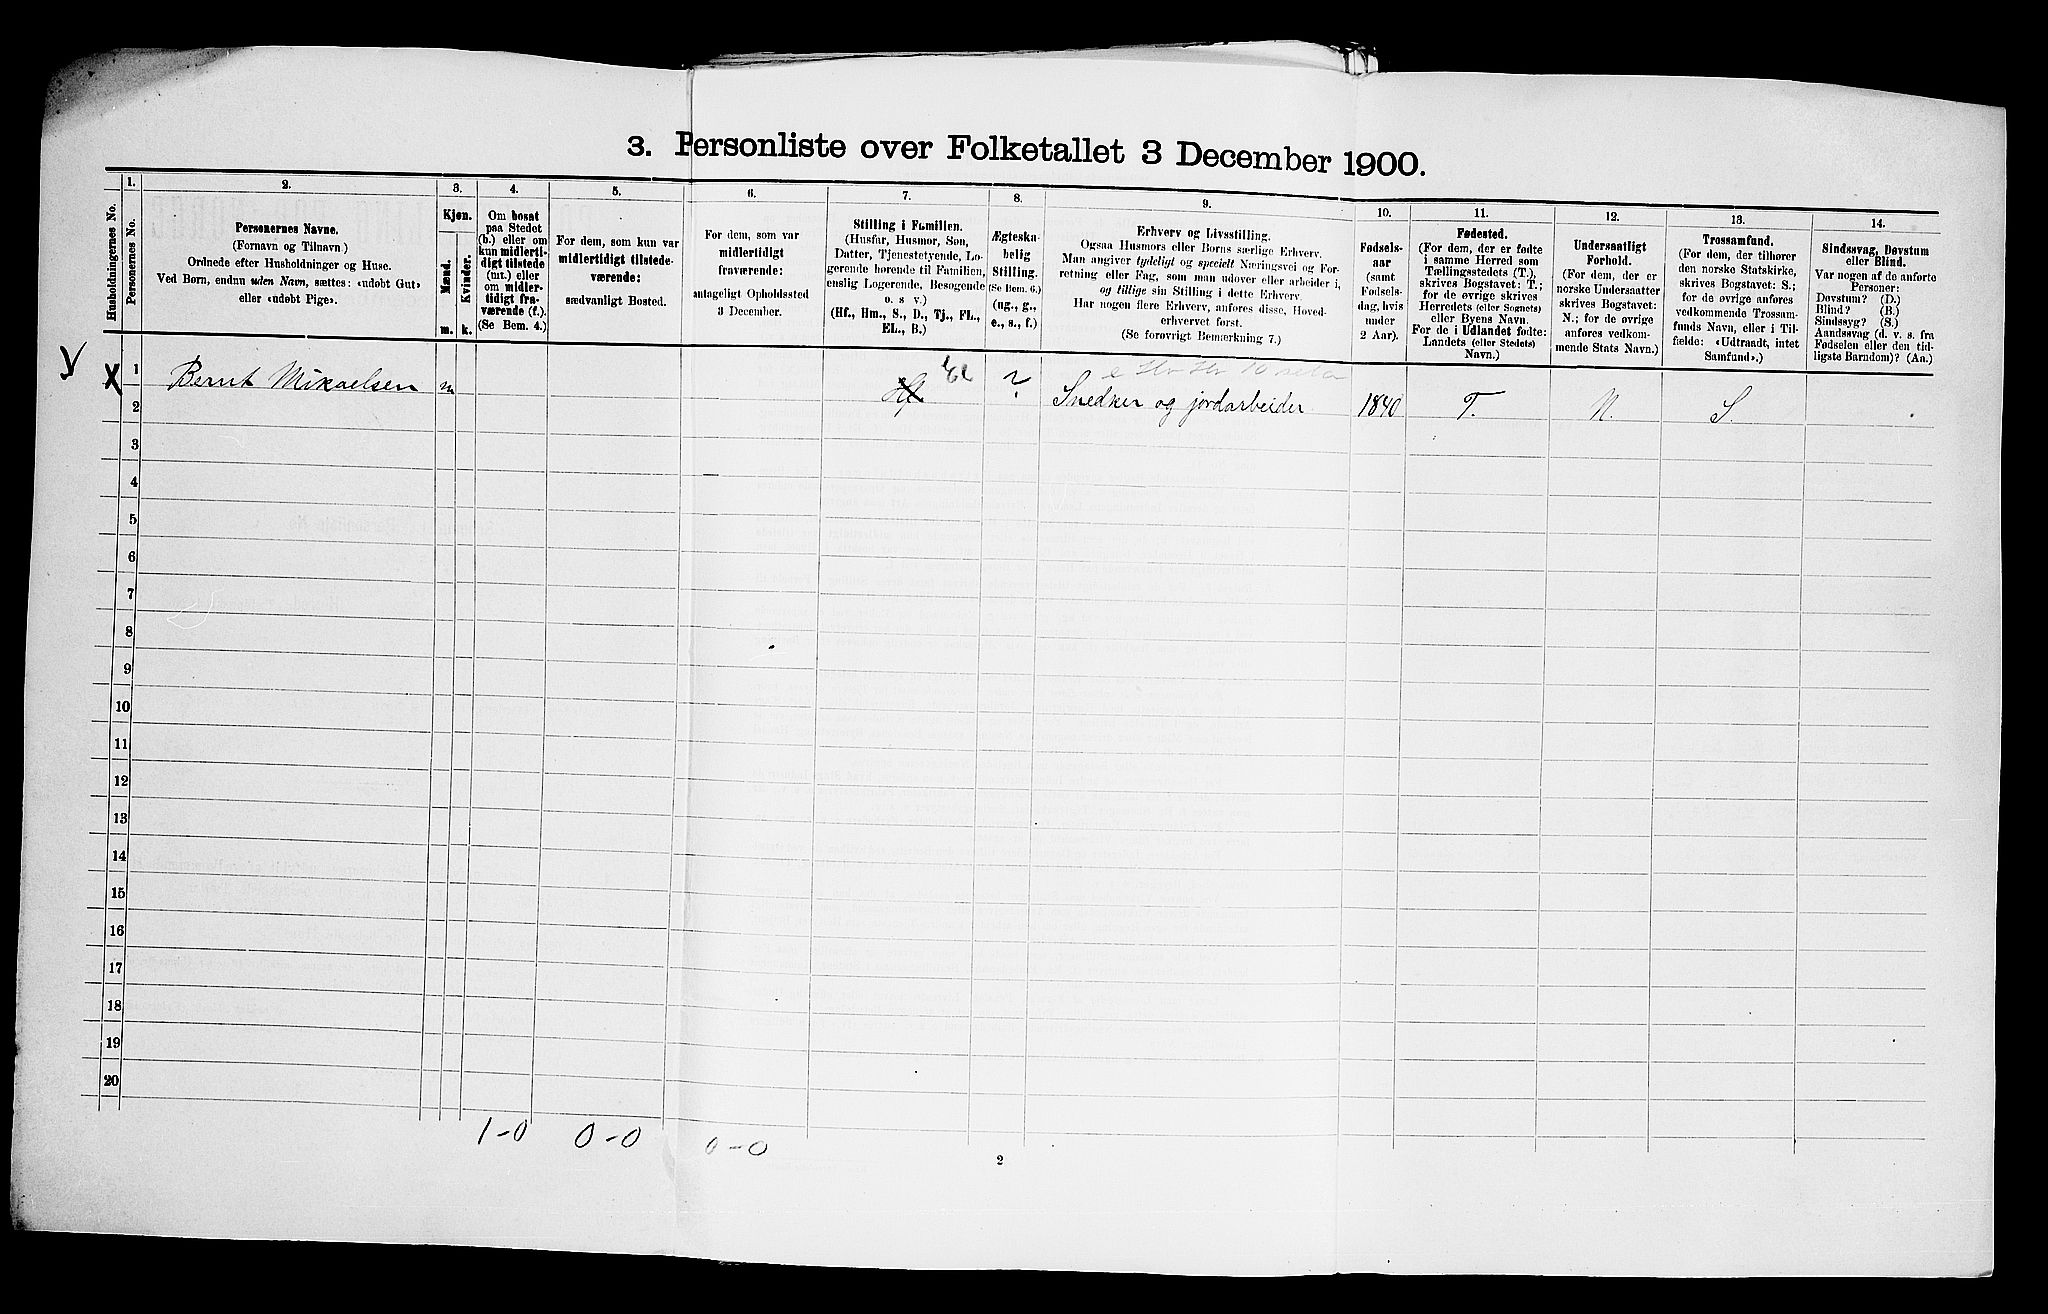 3. Personliste over Folketallet 3 December 1900.
Husholdningernes No.
1.
Personernes No.
2.
Personernes Navne.
(Fornavn og Tilnavn)
Ordnede efter Husholdninger og Huse.
Ved Børn, endnu uden Navn, sættes: «udøbt Gut»
eller «udøbt Pige».
3.
Kjøn.
Mænd.
Kvinder.
m. k.
4.
Om bosat
paa Stedet
(b.) eller om
kun midlerti-
digt tilstede
(mt.) eller
om midler-
tidigt fra-
værende (f.).
(Se Bem. 4.)
5.
For dem, som kun var
midlertidigt tilstede-
værende:
sædvanligt Bosted.
6.
For dem, som var
midlertidigt
fraværende:
antageligt Opholdssted
3 December.
7.
Stilling i Familien.
(Husfar, Husmor, Søn,
Datter, Tjenestetyende, Lo-
gerende hørende til Familien,
enslig Logerende, Besøgende
o. s v.)
(Hf., Hm., S., D., Tj., FL.,
EL., B.)
8.
Ægteska-
belig
Stilling.
(Se Bem. 6.)
(ug., g.,
e., s., f.)
9.
Erhverv og Livsstilling.
Ogsaa Husmors eller Børns særlige Erhverv.
Man angiver tydeligt og specielt Næringsvei og For-
retning eller Fag, som man udøver eller arbeider i,
og tillige sin Stilling i dette Erhverv.
Har nogen flere Erhverv, anføres disse, Hoved-
erhvervet først.
(Se forøvrigt Bemærkning 7.)
10.
Fødsels-
aar
(samt
Fødsels-
dag, hvis
under
2 Aar).
11.
Fødested.
(For dem, der er fødte
i samme Herred som
Tællingsstedets (T.),
skrives Bogstavet: T.;
for de øvrige skrives
Herredets (eller Sognets)
eller Byens Navn.
For de i Udlandet fødte:
Landets (eller Stedets)
Navn.)
12.
Undersaatligt
Forhold.
(For dem, der er
norske Undersaatter
skrives Bogstavet:
N.; for de øvrige
anføres vedkom-
mende Stats Navn.)
13.
Trossamfund.
(For dem, der tilhører
den norske Statskirke,
skrives Bogstavet: S.;
for de øvrige anføres
vedkommende Trossam-
funds Navn, eller i Til-
fælde: «Udtraadt, intet
Samfund».)
14.
Sindssvag, Døvstum
eller Blind.
Var nogen af de anførte
Personer:
Døvstum? (D.)
Blind? (B.)
Sindssyg? (S.)
Aandssvag (d. v. s. fra
Fødselen eller den tid-
ligste Barndom)? (Aa.)
X 1 Bernt Mikaelsen m Hf El ? Snedker og jordarbeider 1840 T. N. S.
2
3
4
5
6
7
8
9
10
11
12
13
14
15
16
17
18
19
20
1-0 0-0 0-0
2